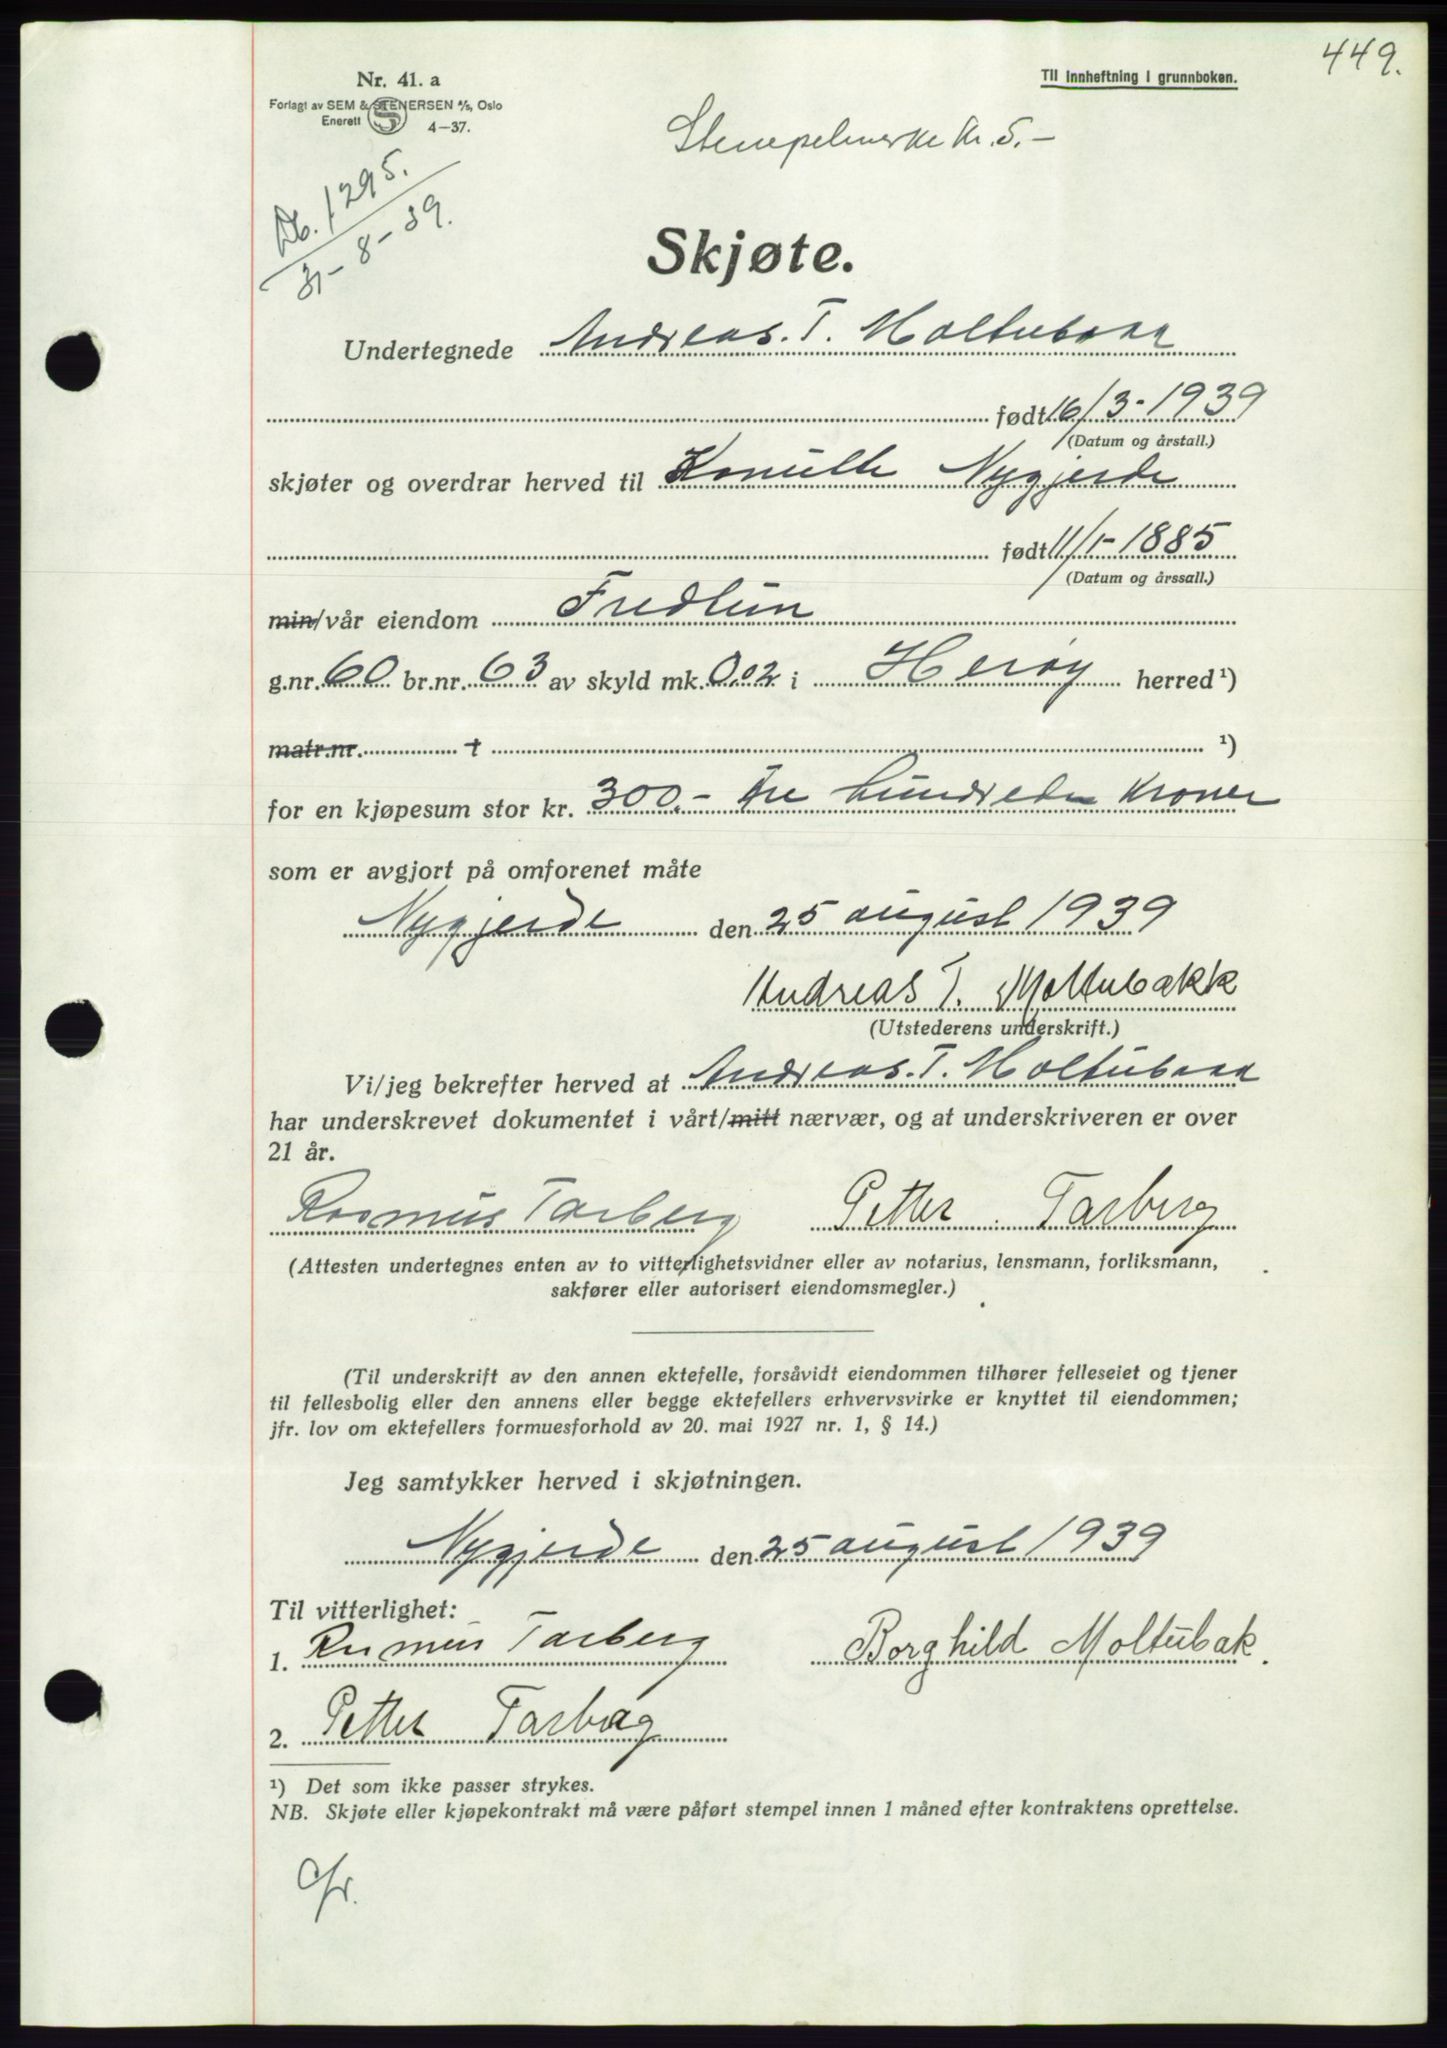 449.
Nr. 41. a
Til innheftning i grunnboken.
Forlagt av SEM & STENERSEN A/S, Oslo
Enerett 4—37.
Stempelmerke kr. 5.-
Db. 1295.
31-8-39.
Skjøte.
Undertegnede Andreas. T. Moltubakk
født 16/3-1939
(Datum og årstall.)
skjøter og overdrar herved til Nygjerde
født 11/1-1885
(Datum og årssall.)
min/vår eiendom Fredlun
g.nr. 60 br.nr. 63 av skyld mk. 0,02 i Herøy herred ¹)
matr.nr. + ¹)
for en kjøpesum stor kr. 300.- Tre hundrede Kroner
som er avgjort på omforenet måte
Nygjerde den 25 august 1939
Andreas T. Moltubakk
(Utstederens underskrift.)
Vi/jeg bekrefter herved at Andreas. T. Moltubakk
har underskrevet dokumentet i vårt/mitt nærvær, og at underskriveren er over
21 år.
Rasmus Tarberg Petter Tarberg
(Attesten undertegnes enten av to vitterlighetsvidner eller av notarius, lensmann, forliksmann,
sakfører eller autorisert eiendomsmegler.)
(Til underskrift av den annen ektefelle, forsåvidt eiendommen tilhører felleseiet og tjener
til fellesbolig eller den annens eller begge ektefellers erhvervsvirke er knyttet til eiendommen;
jfr. lov om ektefellers formuesforhold av 20. mai 1927 nr. 1, § 14.)
Jeg samtykker herved i skjøtningen.
Nygjerde den 25 august 1939
Til vitterlighet:
1. Rasmus Tarberg Borghild Moltubak.
2. Petter Tarberg
¹) Det som ikke passer strykes.
NB. Skjøte eller kjøpekontrakt må være påført stempel innen 1 måned efter kontraktens oprettelse.